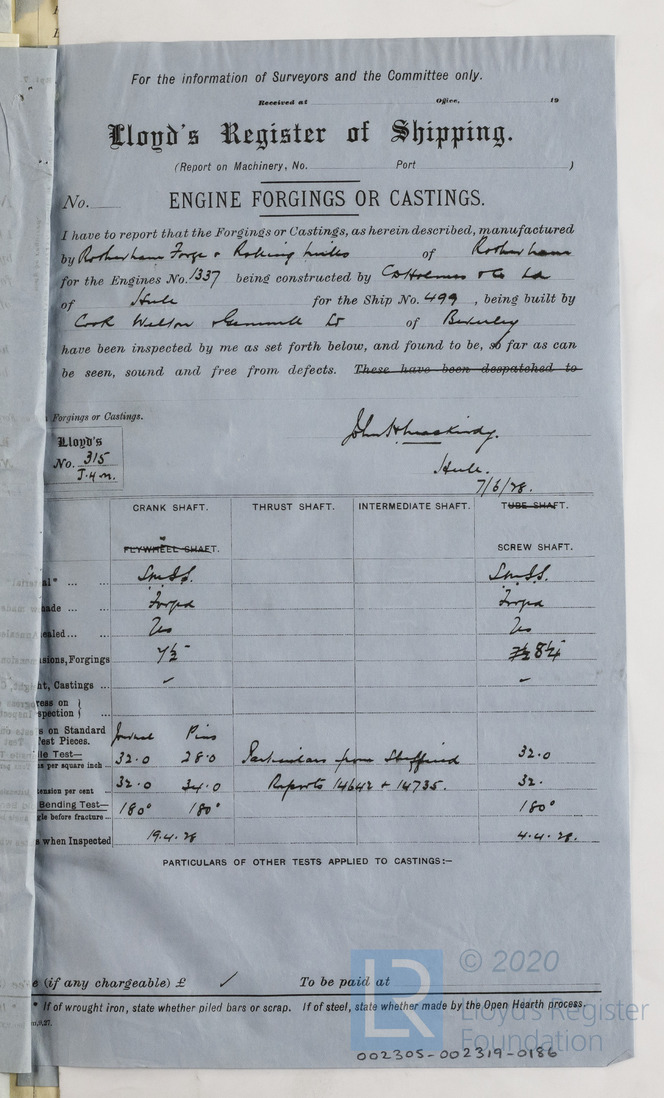 For the information of Surveyors and the Committee only.
Received at Office, 19
Lloyd's Register of Shipping.
(Report on Machinery, No. Port )
No. ENGINE FORGINGS OR CASTINGS.
I have to report that the Forgings or Castings, as herein described, manufactured
by Rotherham Forge & Rolling Mills of Rotherham
for the Engines No. 1337 being constructed by C D Holmes & Co Ld
of Hull for the Ship No. 499, being built by
Cook Welton & Gemmell Ld of Beverley
have been inspected by me as set forth below, and found to be, so far as can
be seen, sound and free from defects. These have been despatched to
Forgings or Castings.
Lloyd's
No. 315
J.H.M.
Hull.
7/6/28.
CRANK SHAFT. THRUST SHAFT. INTERMEDIATE SHAFT. TUBE SHAFT.
FLYWHEEL SHAFT. SCREW SHAFT.
al* ... ... S.M.I.S. S.M.I.S.
ade ... ... Forged Forged
ealed ... ... Yes Yes
sions, Forgings 7½" 8¼
ht, Castings ... ✓ ✓
ress on }
spection } ...
s on Standard Journal Pins
est Pieces.
le Test— 32.0 28.0 Particulars from Sheffield 32.0
s per square inch ...
tension per cent ... 32.0 34.0 Reports 14642 & 14735. 32.
Bending Test— 180° 180° 180°
gle before fracture ...
s when Inspected 19.4.28 4.4.28.
PARTICULARS OF OTHER TESTS APPLIED TO CASTINGS:—
e (if any chargeable) £ ✓ To be paid at
* If of wrought iron, state whether piled bars or scrap. If of steel, state whether made by the Open Hearth process.
LR © 2020
Lloyd's Register
Foundation
002305-002319-0186